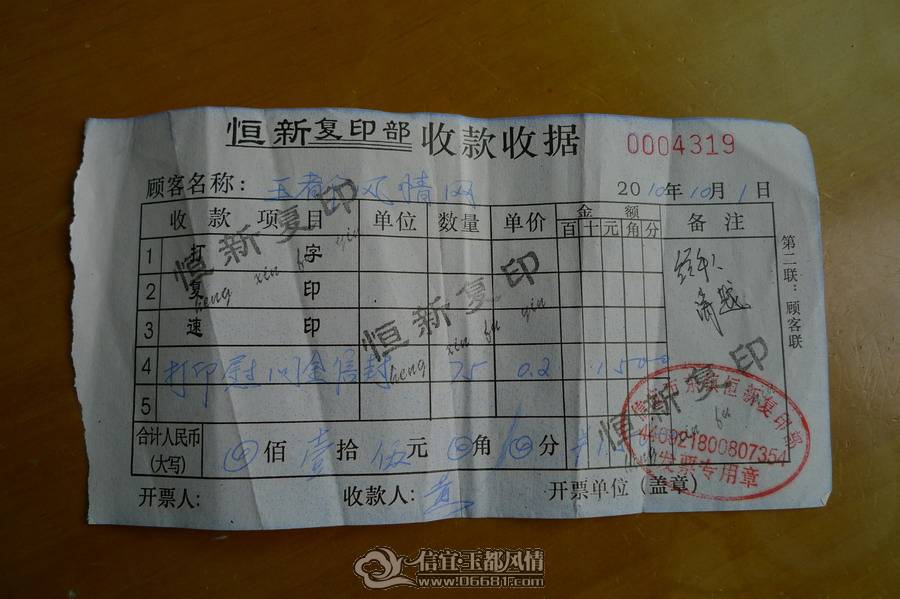 恒新复印部 收款收据 0004319
顾客名称: 玉都风情网 2010年10月1日
收款项目 单位 数量 单价 金额 备注
百 十 元 角 分
1 打字
2 复印
3 速印
4 打印慰问金信封 75 0.2 1500
5
合计人民币(大写) 佰 壹 拾 伍 元 角 分
开票人: 收款人: 黄 开票单位(盖章)
第二联:顾客联
经手人
恒新复印
heng xin fu yin
恒新复印
heng xin fu yin
恒新复印
heng xin fu
恒新复印部
440921800807354
发票专用章
信宜·玉都风情
www.06681.com